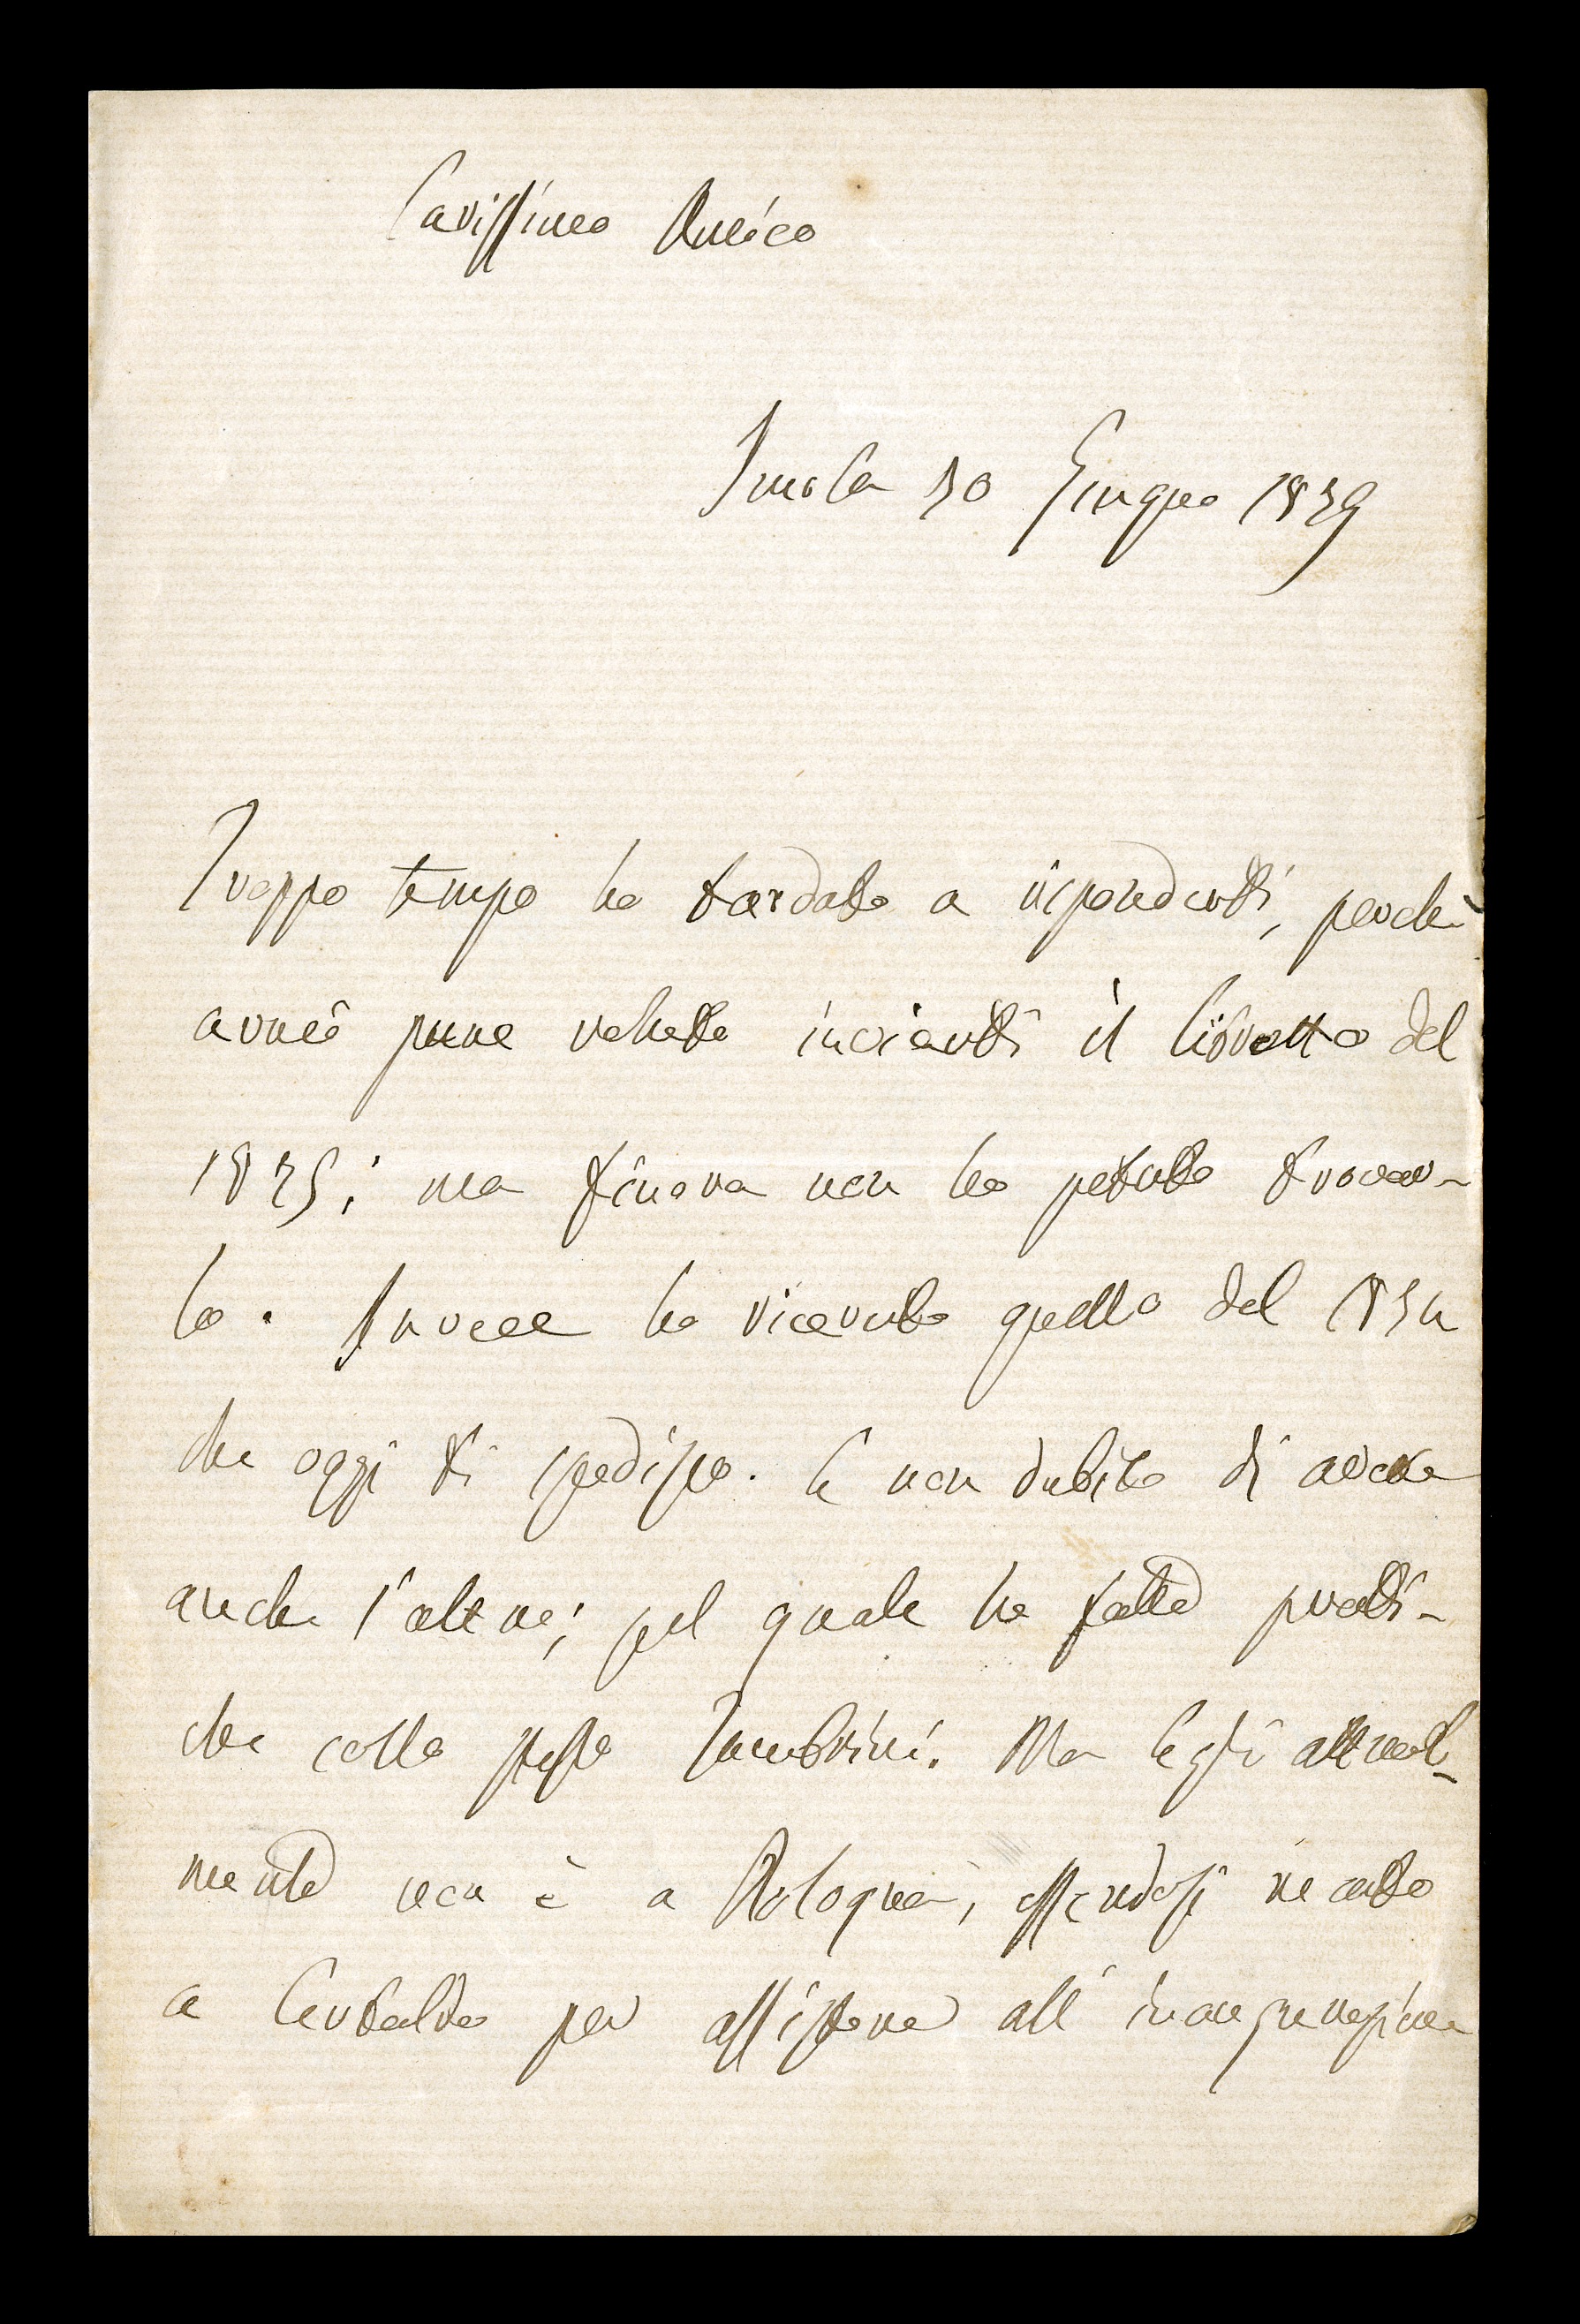 Carissimo Amico
Imola Giugno 1879
Troppo tempo ho tardato a risponderti, perchè
avrei pure voluto inviarti il libretto del
1875; ma finora non ho potuto trovar-
lo. Invece ho ricevuto quello del 1874
che oggi ti spedisco. E non dubito di avere
anche l'altro; pel quale ho fatto prati-
che collo stesso Zambrini. Ma Egli attual-
mente non è a Bologna, essendosi recato
a Certaldo per assistere all'inaugurazione